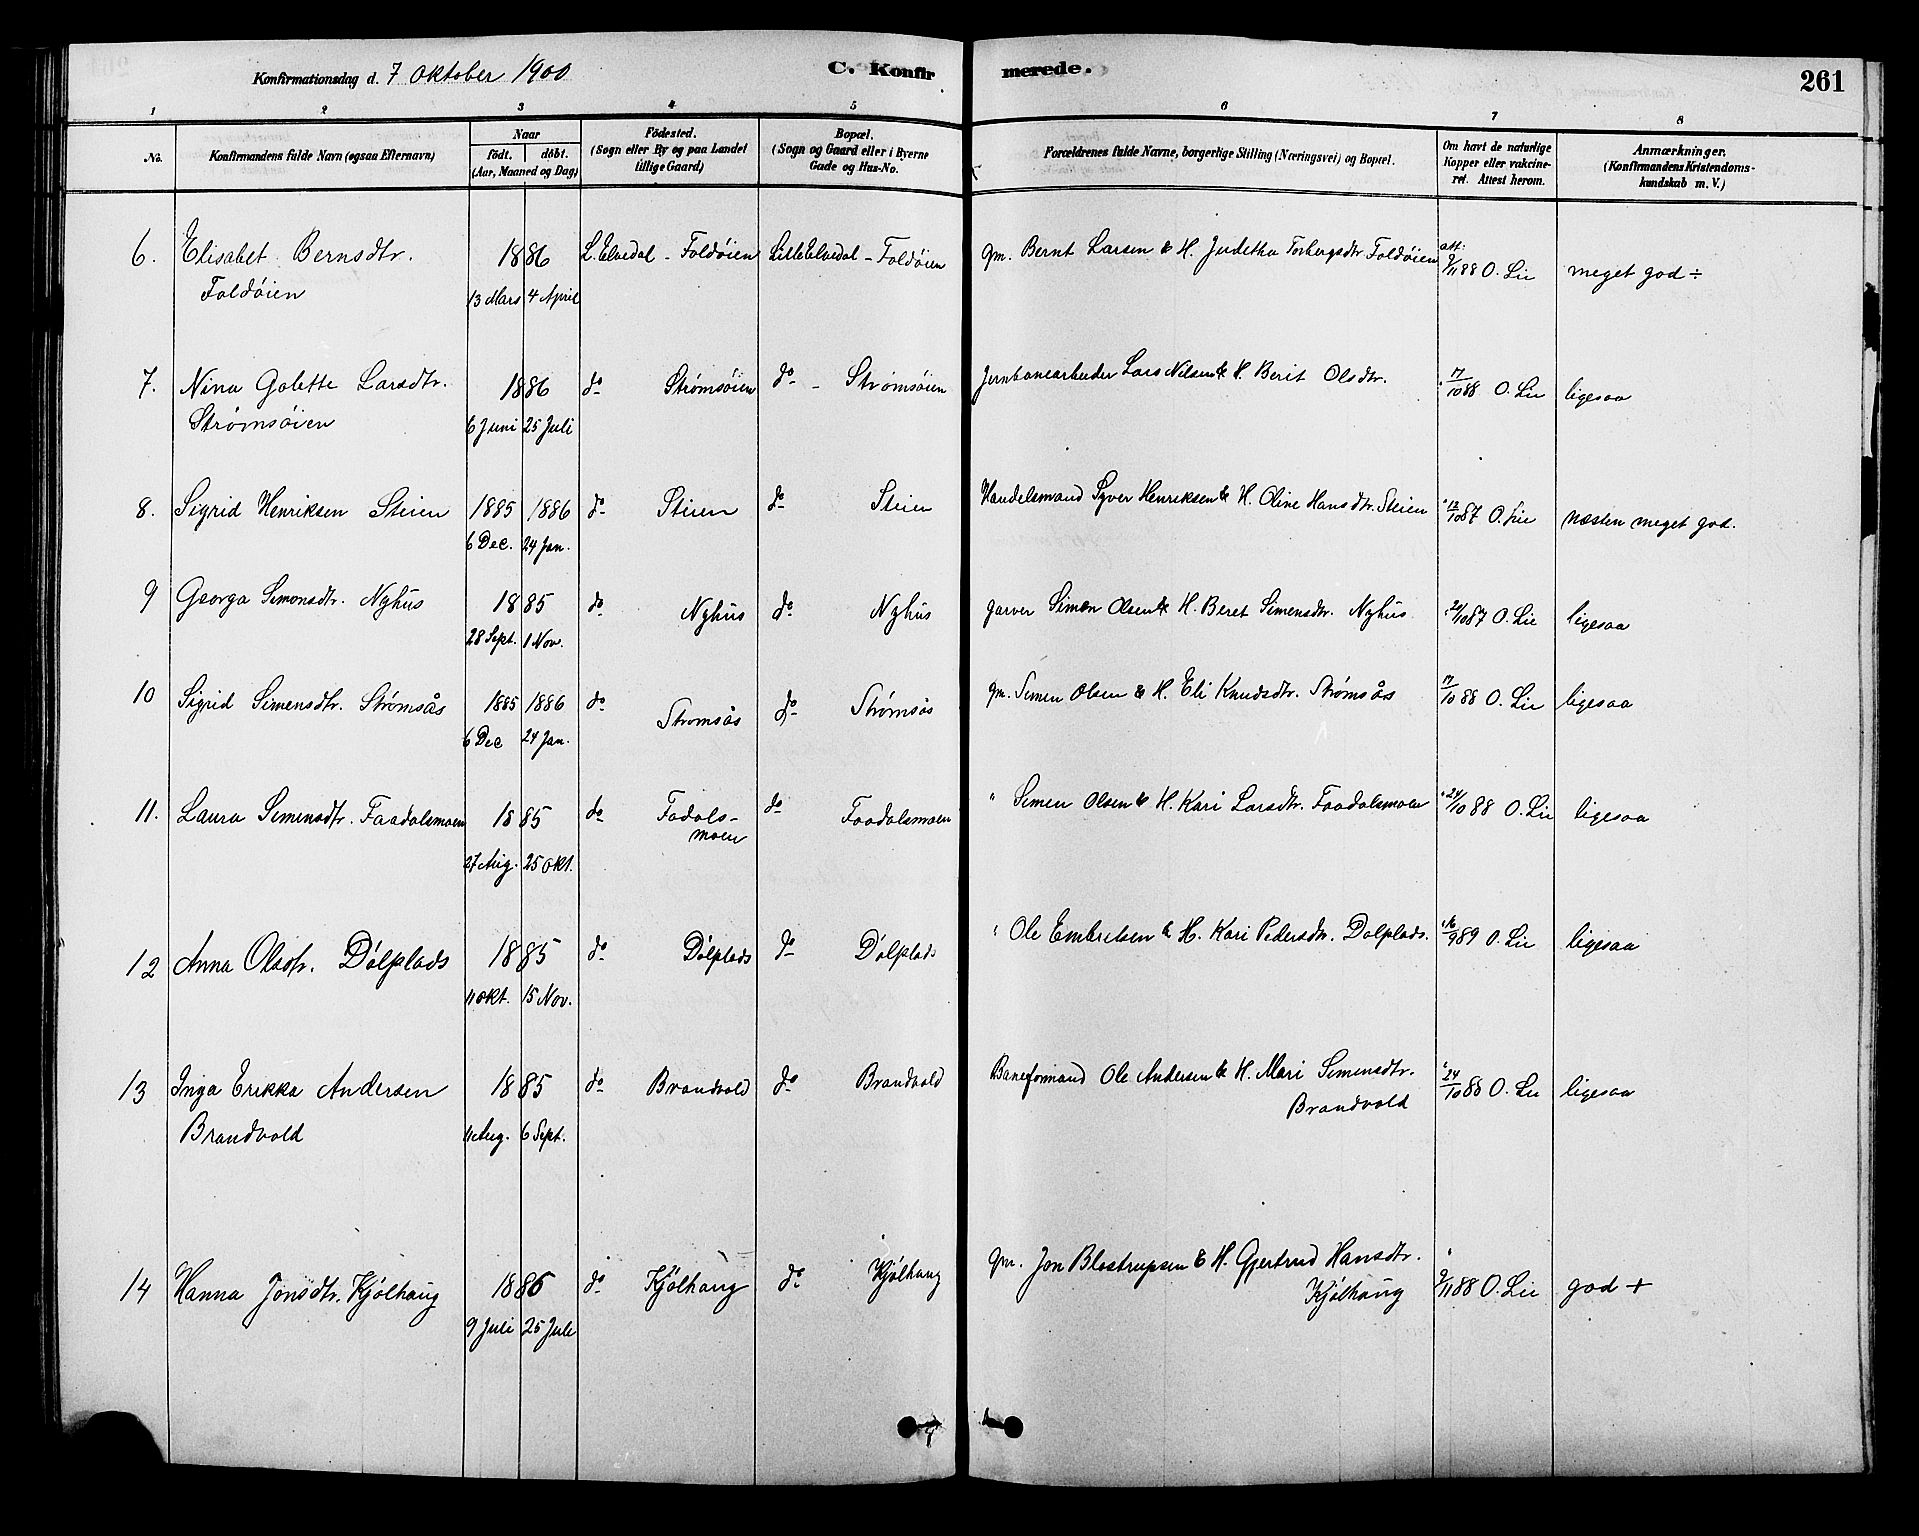 Konfirmationsdag d. 7 Oktober 1900 C. Konfirmerede. 261
1 2 3 4 5 6 7 8
No. Konfirmandens fulde Navn (ogsaa Efternavn) Naar født. døbt. (Aar, Maaned og Dag) Fødested. (Sogn eller By og paa Landet tillige Gaard) Bopæl. (Sogn og Gaard eller i Byerne Gade og Hus-No. Forældrenes fulde Navne, borgerlige Stilling (Næringsvei) og Bopæl. Om havt de naturlige Kopper eller vakcineret. Attest herom. Anmærkninger. (Konfirmandens Kristendomskundskab m. V.)
6. Elisabet Bernsdtr. 1886 L. Elvedal - Foldøien Lille Elvedal - Foldøien gm. Bernt Larsen & H. Judetha Torbergsdtr Foldøien att: 9/11 88 O. Lie meget god ÷
Foldøien 13 Mars 4 April
7. Nina Golette Larsdtr. 1886 do Strømsøien do - Strømsøien Jernbanearbeider Lars Nilsen & H. Berit Olsdtr. 17/10 88 O. Lie ligesaa
Strømsøien 6 Juni 25 Juli
8. Sigrid Henriksen Steien 1885 1886 do Steien do Steien Handelsmand Syver Henriksen & H. Oline Hansdtr. Steien " 12/10 87 O. Lie næsten meget god.
6 Dec. 24 Jan.
9 Georga Simonsdtr. Nyhus 1885 do Nyhus do Nyhus garver Simen Olsen & H. Beret Simensdtr. Nyhus " 24/10 87 O. Lie ligesaa
28 Sept. 1 Nov.
10 Sigrid Simensdtr. Strømsås 1885 1886 do Strømsås do Strømsås gm. Simen Olsen & H. Eli Knudsdtr. Strømsås 17/10 88 O. Lie ligesaa
6 Dec 24 Jan.
11. Laura Simensdtr. Faadalsmoen 1885 do Fadals- do Faadalsmoen " Simen Olsen & H. Kari Larsdtr. Faadalsmoen " 24/10 88 O. Lie ligesaa
moen
27 Aug. 25 Okt.
12 Anna Olsdtr. Dølplads 1885 do Dølplads do Dølplads " Ole Embretsen & H. Kari Pedersdtr. Dølplads. " 16/9 89 O. Lie ligesaa
11 Okt. 15 Nov.
13 Inga Erikka Andersen 1885 do Brandvold do Brandvold Baneformand Ole Andersen & H. Mari Simensdtr. " 24/10 88 O. Lie ligesaa
Brandvold 11 Aug. 6 Sept. Brandvold
14 Hanna Jonsdtr. Kjølhaug 1886 do Kjølhaug do Kjølhaug gm. Jon Blostrupsen & H. Gjertrud Hansdtr. " 9/11 88 O. Lie god +
9 Juli 25 Juli Kjølhaug